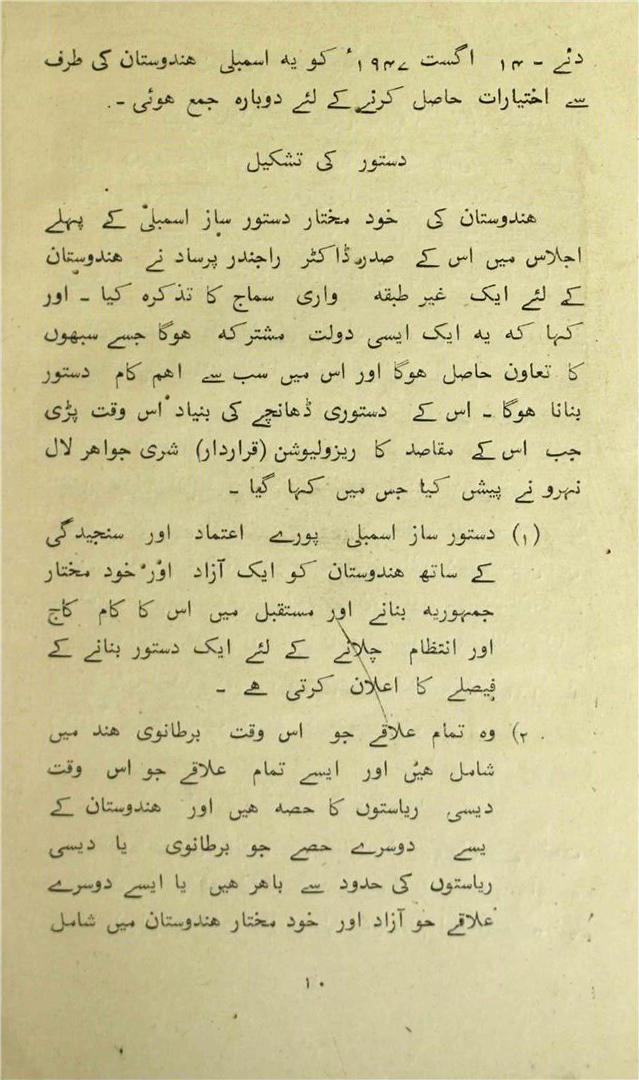 دئے ـ ۱۴ اگست ۱۹۴۷ء کو یہ اسمبلی ہندوستان کی طرف
سے اختیارات حاصل کرنے کے لئے دوبارہ جمع ہوئی ـ
دستور کی تشکیل
ہندوستان کی خود مختار دستور ساز اسمبلی کے پہلے
اجلاس میں اس کے صدر ڈاکٹر راجندر پرساد نے ہندوستان
کے لئے ایک غیر طبقہ واری سماج کا تذکرہ کیا ـ اور
کہا کہ یہ ایک ایسی دولت مشترکہ ہوگا جسے سبھوں
کا تعاون حاصل ہوگا اور اس میں سب سے اہم کام دستور
بنانا ہوگا ـ اس کے دستوری ڈھانچے کی بنیاد اس وقت پڑی
جب اس کے مقاصد کا ریزولیوشن (قراردار) شری جواہر لال
نہرو نے پیش کیا جس میں کہا گیا ـ
(۱) دستور ساز اسمبلی پورے اعتماد اور سنجیدگی
کے ساتھ ہندوستان کو ایک آزاد اور خود مختار
جمہوریہ بنانے اور مستقبل میں اس کا کام کاج
اور انتظام چلانے کے لئے ایک دستور بنانے کے
فیصلے کا اعلان کرتی ہے ـ
۲) وہ تمام علاقے جو اس وقت برطانوی ہند میں
شامل ہیں اور ایسے تمام علاقے جو اس وقت
دیسی ریاستوں کا حصہ ہیں اور ہندوستان کے
یسے دوسرے حصے جو برطانوی یا دیسی
ریاستوں کی حدود سے باہر ہیں یا ایسے دوسرے
علاقے جو آزاد اور خود مختار ہندوستان میں شامل
۱۰